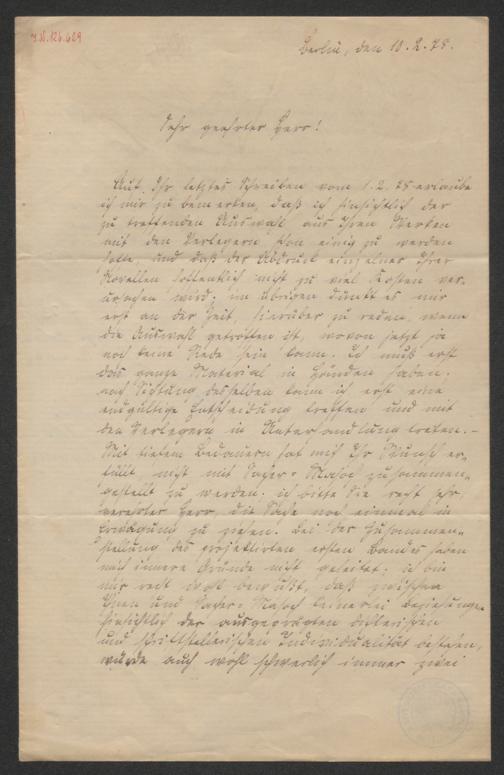 J.N. 126.629
Berlin, den 10.2.78.
Sehr geehrter Herr!
Auf Ihr letztes Schreiben vom 1.2.78 erlaube
ich mir zu bemerken, daß ich hinsichtlich der
zu treffenden Auswahl aus Ihren Werken
mit den Verlegern schon einig zu werden
hoffe, und daß der Abdruck einzelner Ihrer
Novellen hoffentlich nicht zu viel Kosten ver-
ursachen wird; im übrigen dünkt es mir
erst an der Zeit, hierüber zu reden, wenn
die Auswahl getroffen ist, wovon jetzt ja
noch keine Rede sein kann. Ich muß erst
das ganze Material in Händen haben;
nach Sichtung desselben kann ich erst eine
endgültige Entscheidung treffen und mit
den Verlegern in Unterhandlung treten. –
Mit tiefem Bedauern hat mich Ihr Wunsch er-
füllt nicht mit Sacher-Masoch zusammen-
gestellt zu werden; ich bitte Sie recht sehr,
verehrter Herr, die Sache noch einmal in
Erwägung zu ziehen. Bei der Zusammen-
stellung des projektirten ersten Bandes haben
mich innere Gründe nicht geleitet; ich bin
mir recht wohl bewußt, daß zwischen
Ihnen und Sacher-Masoch keinerlei Beziehungen
hinsichtlich der ausgeprägten dichterischen
und schriftstellerischen Individualität bestehen,
würde auch wohl schwerlich immer zwei